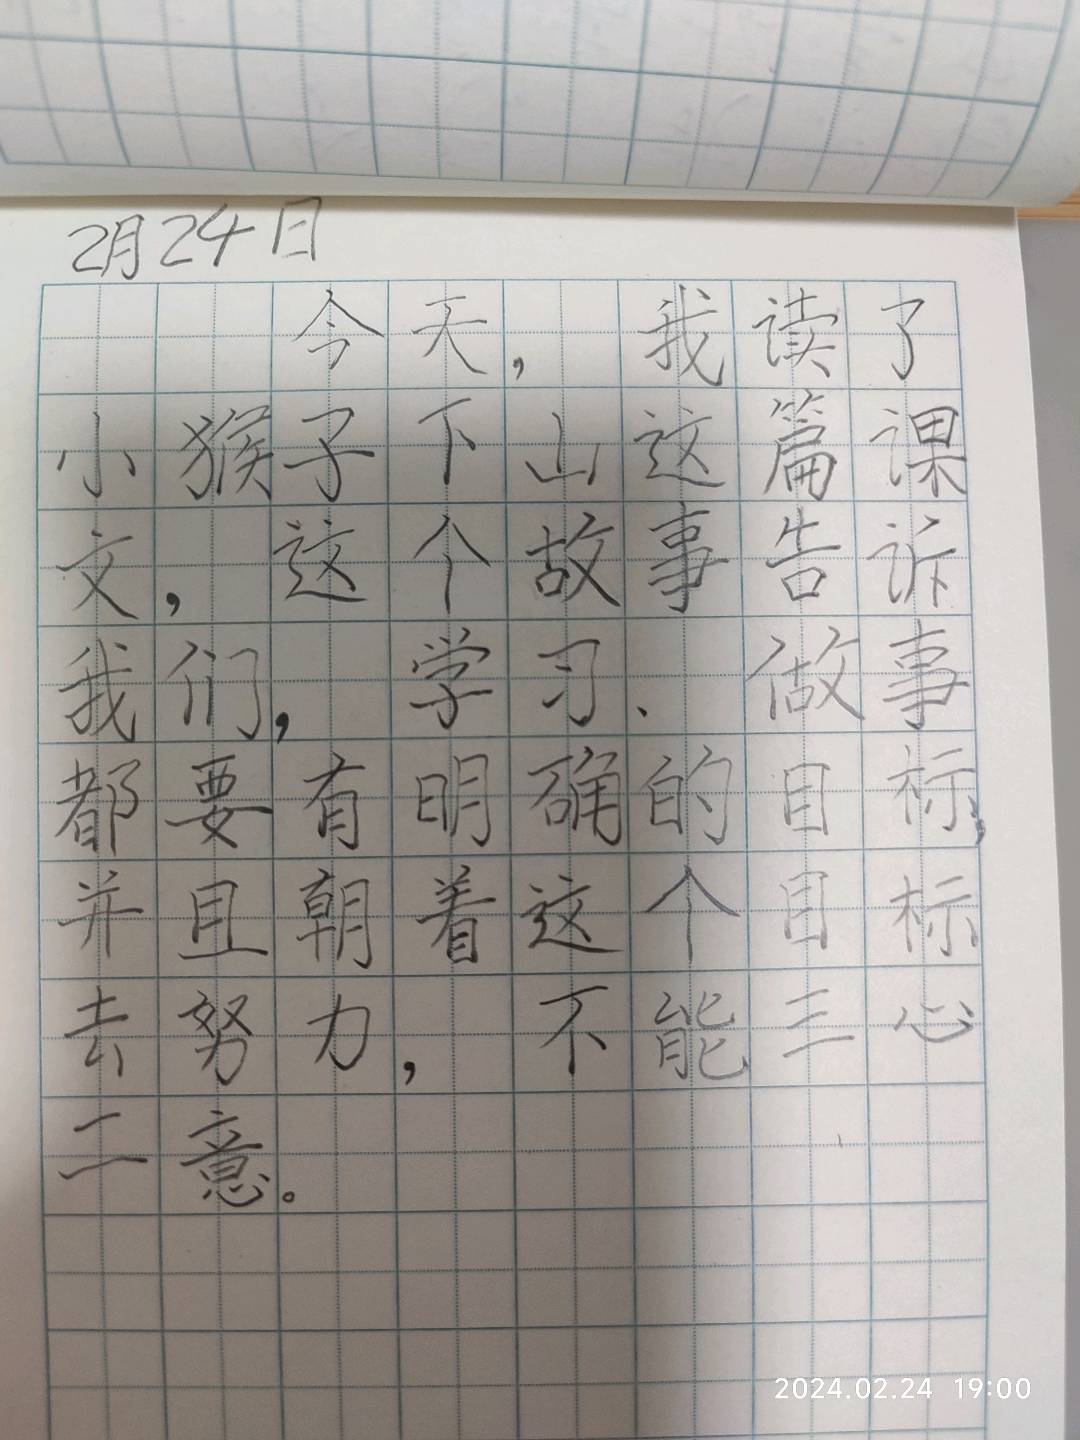 2月24日
今天,我读了
小猴子下山这篇课
文,这个故事告诉
我们,学习、做事
都要有明确的目标,
并且朝着这个目标
去努力,不能三心
二意。
2024.02.24 19:00